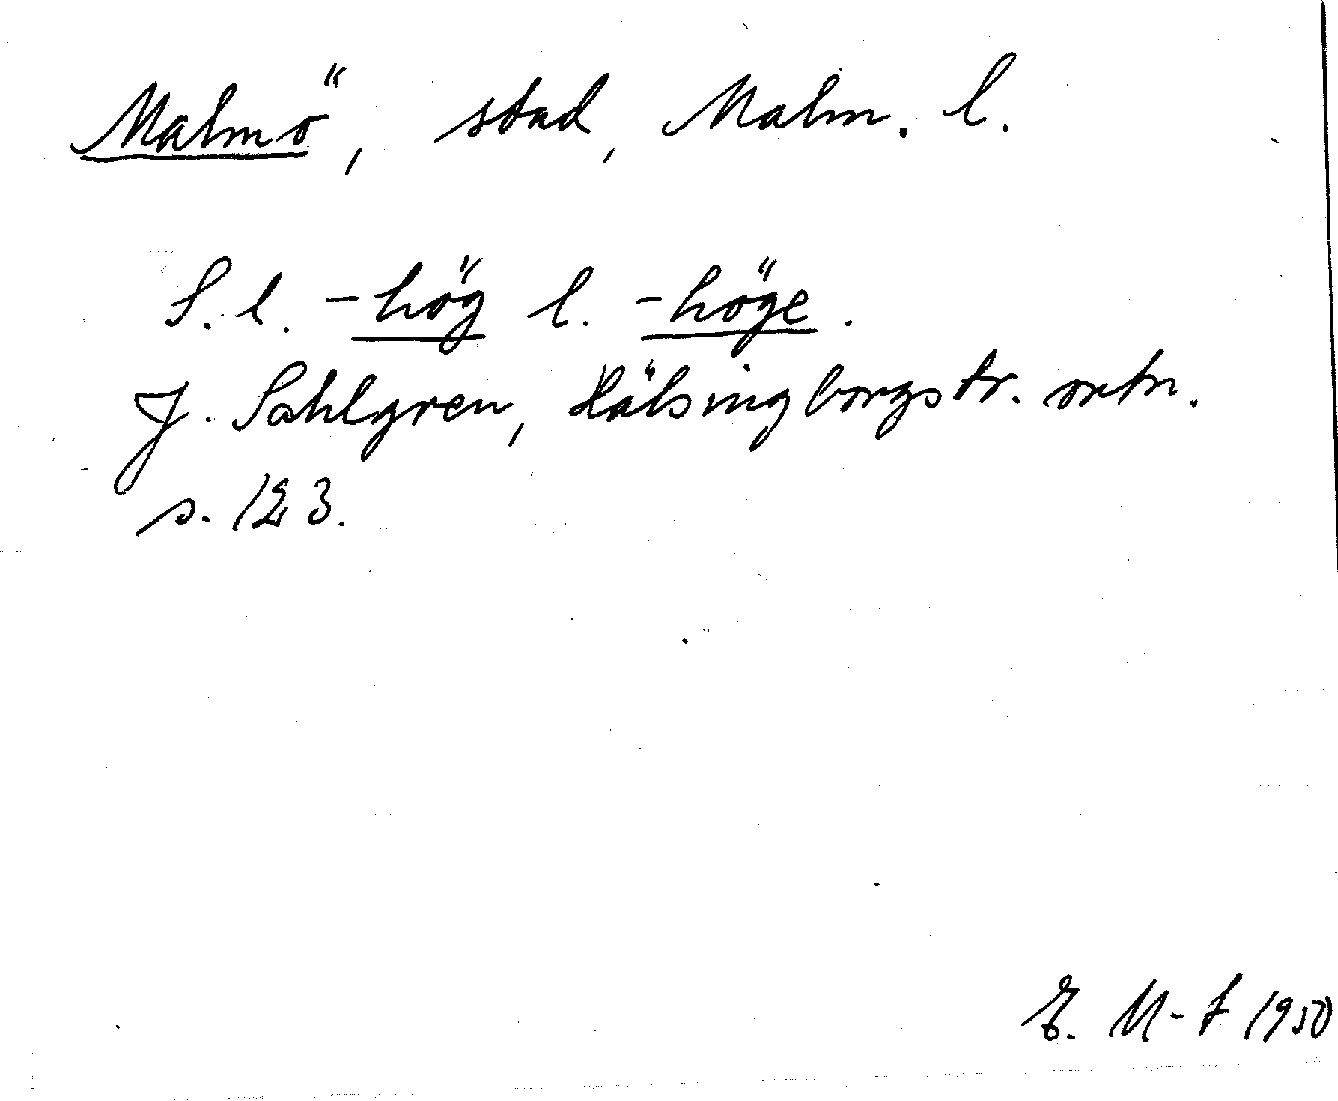 Malmö, stad, Malm. l.
S. l. -hög l. -höge.
J. Sahlgren, Hälsingborgstr. ortn.
s. 123.
E. M-f 1950